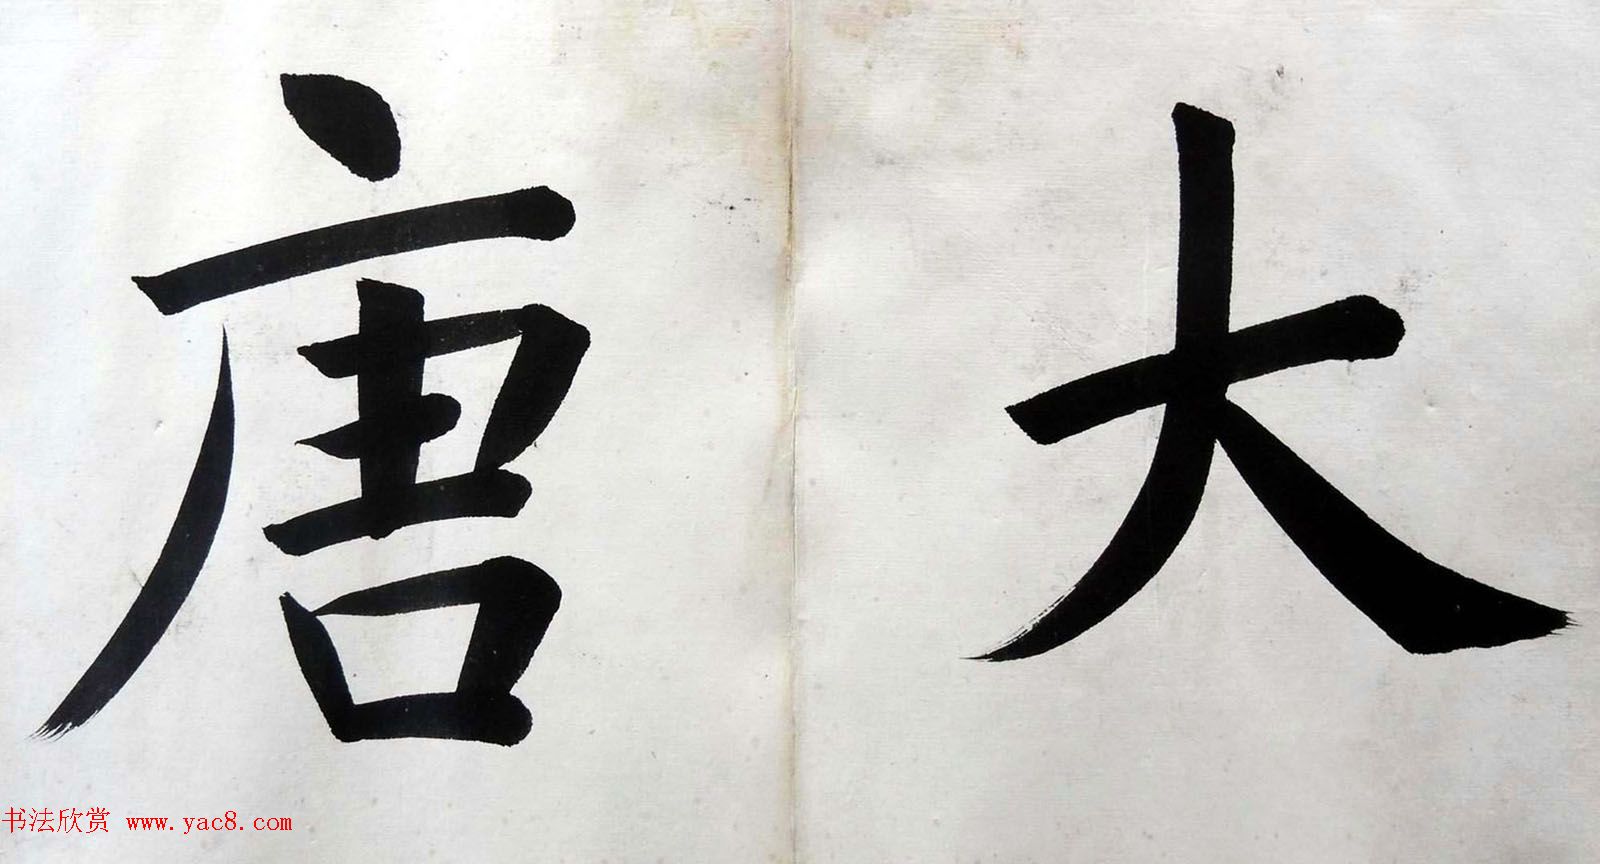 大唐
书法欣赏 www.yac8.com